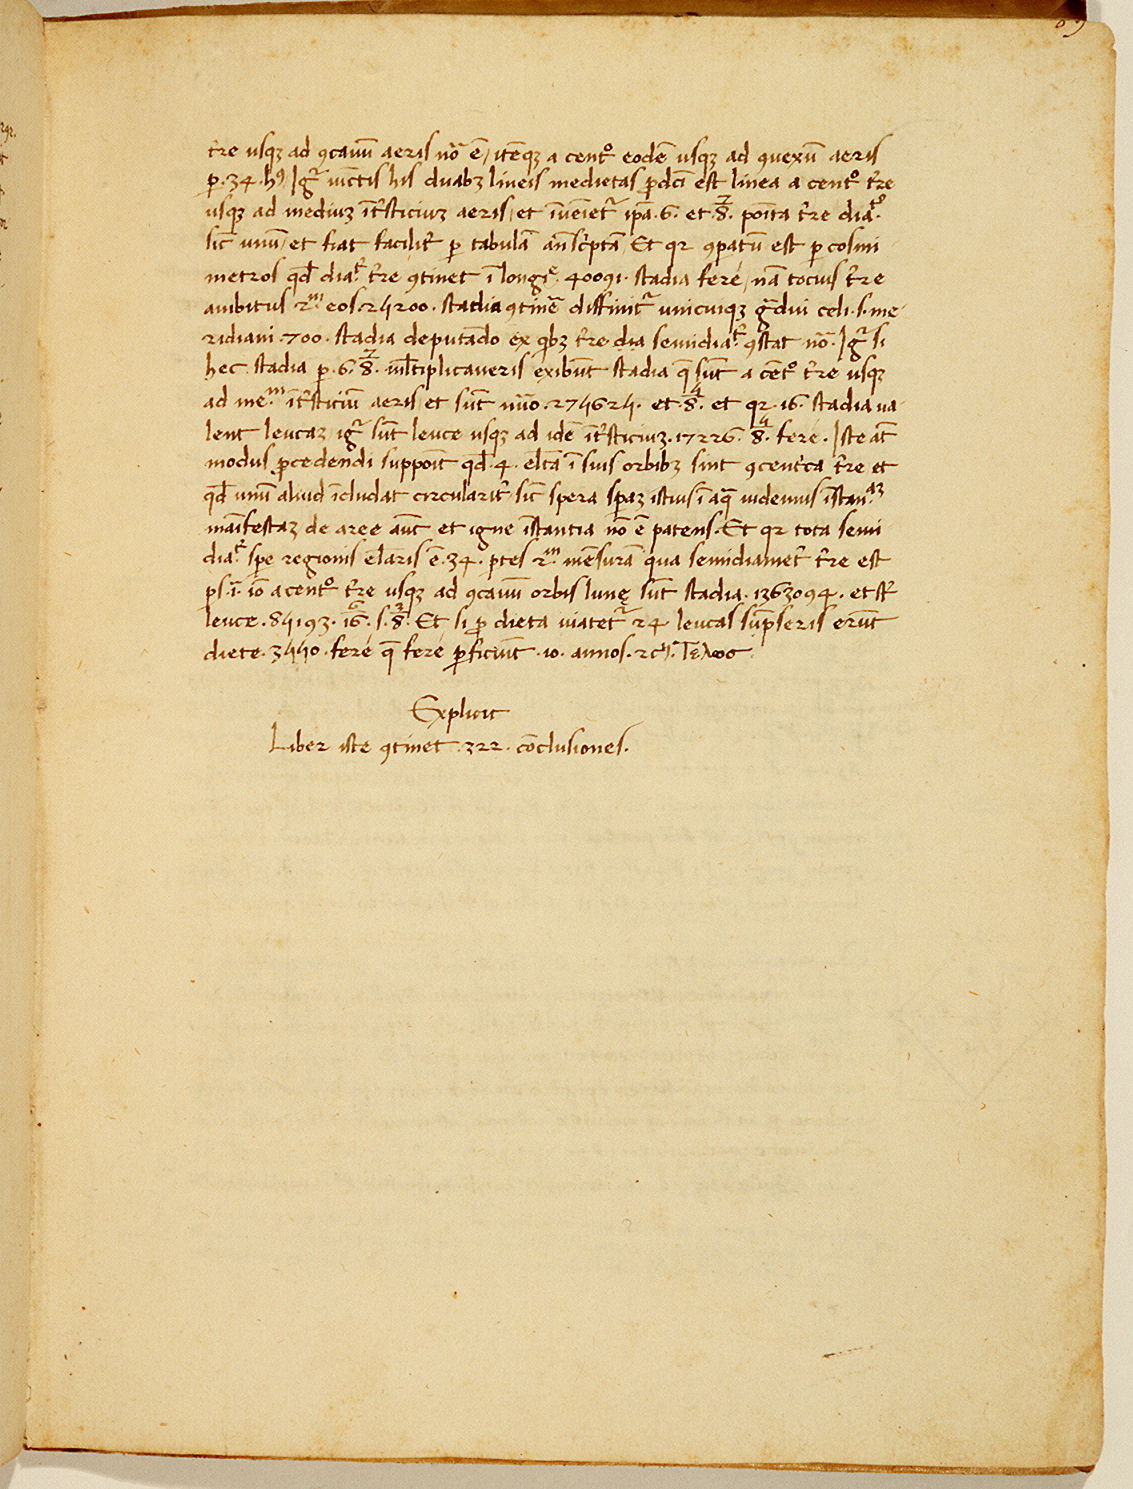 69
t̄re usqꝫ ad ꝯcauū aeris nōᵃ ē, itēqꝫ a centº eodē usqꝫ ad ꝯuexū aeris
ꝑ .34. hꝰ Igr̄ iūctis his duabꝫ lineis medietas ꝓdc̄i est linea a centº t̄re
usqꝫ ad mediuꝫ īt̄sticiuꝫ aeris, et īuēiet̄ ip̄a .6. et 7/8. poīta t̄re diaᵗº.
sic̄ unū, et fiat facilit̄ ꝑ tabulā an̄sc̄ptā, Et qꝛ ꝯpatū est ꝑ cosmi
metros qd̄ diaᵗ. t̄re ꝯtinet ī longiᵉ. 40091. stadia fere, nā tocius t̄re
ambitus 2ᵐ eos .25200. stadia ꝯtinē diffinit̄ unicuiqꝫ gᵃdui celi .s. me-
ridiani .700. stadia deputādo ex qᵇꝫ t̄re dia semidiaᵗ. ꝯstat nōᵃ. Igr̄ si
hec stadia ꝑ .6. 7/8. ml̄tiplicaueris exibūt stadia q̄ sūt a cētº t̄re usqꝫ
ad meᵐ īt̄sticiū aeris, et sūt nūo .275625. et 4/8. et qꝛ .16. stadia ua-
lent leucaꝫ, igr̄ sūt leuce usqꝫ ad idē īt̄sticiuꝫ .17226. 4/8. fere. Iste at̄
modus ꝓcedendi suppoīt qd̄ .4. elt̄a ī suis orbibꝫ sint ꝯcent̄ca t̄re et
qd̄ unū aliud īcludat circularit̄ sic̄ spera sp̄aꝫ istius ī aq̄ uidemus īstanᵃꝫ
maīfestaꝫ de aree aūt et igne īstantia nō ē patens. Et qꝛ tota semi
diaᵗ sp̄e regionis elāris ē .34. ptes 2ᵐ mēsurā qua semidiamet̄ t̄re est
ps .i. iō a centº t̄re usqꝫ ad ꝯcauū orbis lunę sūt stadia .1363094. et sr̄
leuce .85193. 6/16. s. 3/8. Et si ꝓ dieta uiatet̄ 24 leucas sūpseris erūt
diete .3550. fere q̄ fere ꝑficiūt .10. annos. 2c̄. Τελωσ
Explicit
Liber iste ꝯtinet .322. cōclusiones.